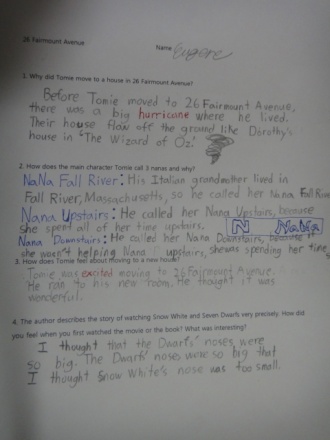 26 Fairmount Avenue
Name Eugene
1. Why did Tomie move to a house in 26 Fairmount Avenue?
Before Tomie moved to 26 Fairmount Avenue,
there was a big hurricane where he lived.
Their house flow off the ground like Dorothy's
house in 'The Wizard of Oz.'
2. How does the main character Tomie call 3 nanas and why?
NaNa Fall River: His Italian grandmother lived in
Fall River, Massachusetts, so he called her Nana Fall River
Nana Upstairs: He called her Nana Upstairs, because
she spent all of her time upstairs.
Nana Downstairs: He called her Nana Downstairs, because if
she wasn't helping Nana upstairs, she was spending her time
3. How does Tomie feel about moving to a new house?
Tomie was excited moving to 26 Fairmount Avenue.
He ran to his new room. He thought it was
wonderful.
4. The author describes the story of watching Snow White and Seven Dwarfs very precisely. How did
you feel when you first watched the movie or the book? What was interesting?
I thought that the Dwarfs' noses were
so big. The Dwarfs' noses were so big that
I thought Snow White's nose was too small.